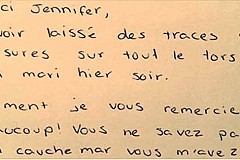 ci Jennifer,
voir laissé des traces
sures sur tout le tors
n mari hier soir.
ment je vous remercie
ucoup! Vous ne savez pa
cauchemar vous m'avez